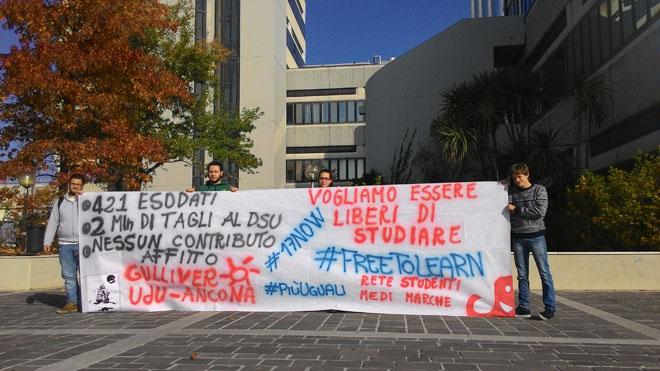 421 ESODATI
2 Mln DI TAGLI AL DSU
NESSUN CONTRIBUTO
AFFITTO
GULLIVER-
UdU-ANCONA
#17NOW
#PIÙUGUALI
VOGLIAMO ESSERE
LIBERI DI
STUDIARE
#FREETOLEARN
RETE STUDENTI
MEDI MARCHE